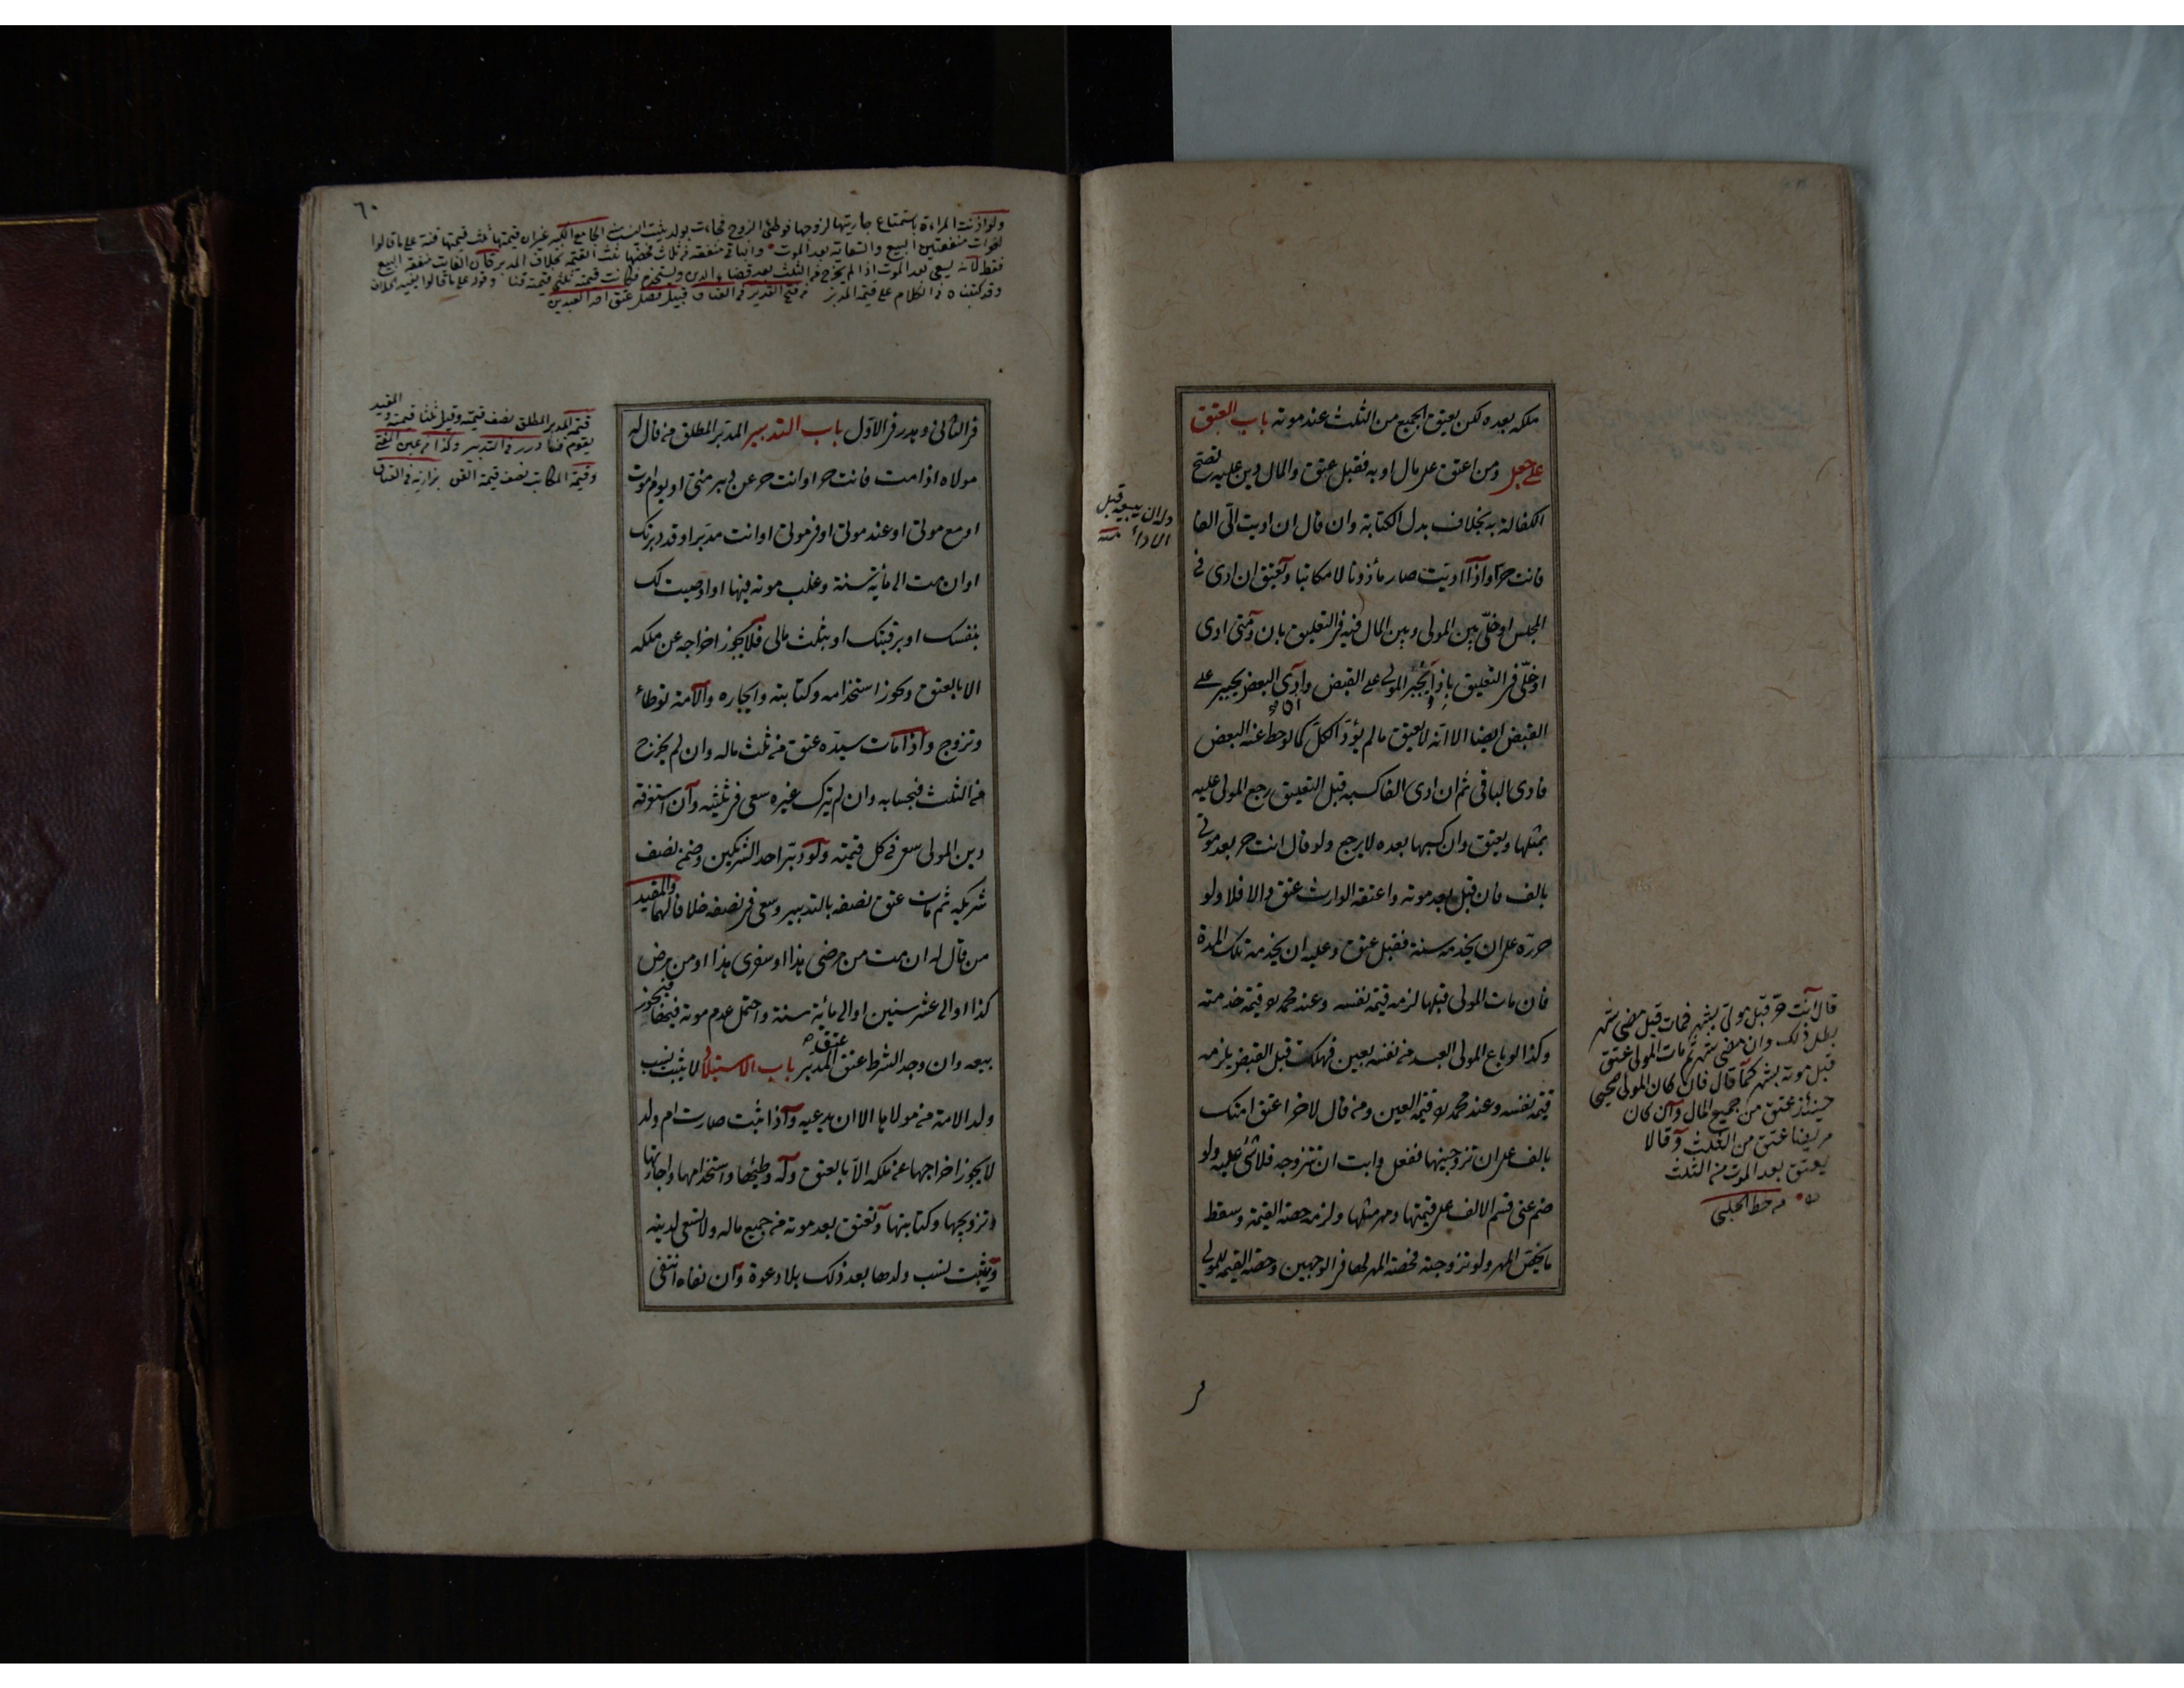 ملكه بعده لكن يعتق الجميع من الثلث عند موته باب العتق
على جعل ومن اعتق على مال او به فقبل عتق والمال دين عليه تصح
الكفالة به بخلاف بدل الكتابة وان قال ان اديت الى الفا
فانت حر او اذا اديت صار مأذونا لا مكاتبا ويعتق ان ادى في
المجلس او خلى بين المولى وبين المال فيه في التعليق بان ومتى ادى
او خلى في التعليق باذا ويجبر المولى على القبض وان ادى البعض يجبر على
القبض ايضا الا انه لا يعتق ما لم يؤد الكل كما لو حط عنه البعض
فادى الباقي ثم ان ادى الفا كسبه قبل التعليق رجع المولى عليه
بمثلها ويعتق وان كسبها بعده لا يرجع ولو قال انت حر بعد موتي
بالف فان قبل بعد موته واعتقه الوارث عتق والا فلا ولو
حرره على ان يخدمه سنة فقبل عتق وعليه ان يخدمه تلك المدة
فان مات المولى قبلها لزمه قيمة نفسه وعند محمد قيمة خدمته
وكذا لو باع المولى العبد من نفسه بعين فهلكت قبل القبض يلزمه
قيمة نفسه وعند محمد قيمة العين ومن قال لاخر اعتق امتك
بالف على ان تزوجنيها ففعل وابت ان تتزوجه فلا شئ عليه ولو
ضم عنى قسم الالف على قيمتها ومهر مثلها ولزمه حصة القيمة وسقط
ما يخص المهر ولو تزوجته فحصة المهر لها في الوجهين وحصة القيمة للمولى
وله ان يبيعه قبل
الاداء
قال انت حر قبل موتي بشهر فمات قبل مضى شهر
بطل ذلك وان مضى شهر ثم مات المولى عتق
قبل موته بشهر كما قال فان كان المولى صحيحا
حينئذ عتق من جميع المال وان كان
مريضا عتق من الثلث وقالا
يعتق بعد الموت من الثلث
من خط الحلبي
٦٠
ولو اذنت المراءة باستمتاع جاريتها لزوجها فوطئ الزوج فجاءت بولد يثبت النسب الجامع الكبير غير ان قيمتها ثلث قيمتها قنة على ما قالوا
لفوات منفعتين البيع والسعاية بعد الموت والباقي منفعة من ثلاث فحصتها ثلث القيمة بخلاف المدبر فان الفائت منفعة البيع
فقط لانه يسعى بعد الموت اذا لم يخرج من الثلث بعد قضاء الدين ويستخدم فكانت قيمته ثلثي قيمته قنا وقوله على ما قالوا يفيد الخلاف
وقد كتبناه في الكلام على قيمة المدبر من فتح القدير في العتاق قبيل فصل عتق احد العبدين
قيمة المدبر المطلق نصف قيمته وقيل ثلثا قيمته والمقيد
يقوم قنا درر في التدبير وكذا من عين المفتى
وقيمة المكاتب نصف قيمة القن بزازيه في العتاق
في الثاني وهدر في الاول باب التدبير المدبر المطلق من قال له
مولاه اذا مت فانت حر او انت حر عن دبر منى او يوم اموت
او مع موتي او عند موتي او في موتي او انت مدبر او قد دبرتك
او ان مت الى مائة سنة وغلب موته فيها او اوصيت لك
بنفسك او برقبتك او بثلث مالى فلا يجوز اخراجه عن ملكه
الا بالعتق ويجوز استخدامه وكتابته وايجاره والامة توطأ
وتزوج واذا مات سيده عتق من ثلث ماله وان لم يخرج
من الثلث فبحسابه وان لم يترك غيره سعى في ثلثيه وان استغرقه
دين المولى سعى في كل قيمته ولو دبر احد الشريكين وضمن نصف
شريكه ثم مات عتق نصفه بالتدبير وسعى في نصفه خلافا لهما والمقيد
من قال له ان مت من مرضى هذا او سفرى هذا او من مرض
كذا او الى عشر سنين او الى مائة سنة واحتمل عدم موته فيها فيجوز
بيعه وان وجد الشرط عتق عتق المدبر باب الاستيلاد لا يثبت نسب
ولد الامة من مولاها الا ان يدعيه واذا ثبت صارت ام ولد
لا يجوز اخراجها عن ملكه الا بالعتق وله وطيها واستخدامها واجارتها
وتزويجها وكتابتها وتعتق بعد موته من جميع ماله ولا تسعى لدينه
ويثبت نسب ولدها بعد ذلك بلا دعوة وان نفاه انتفى